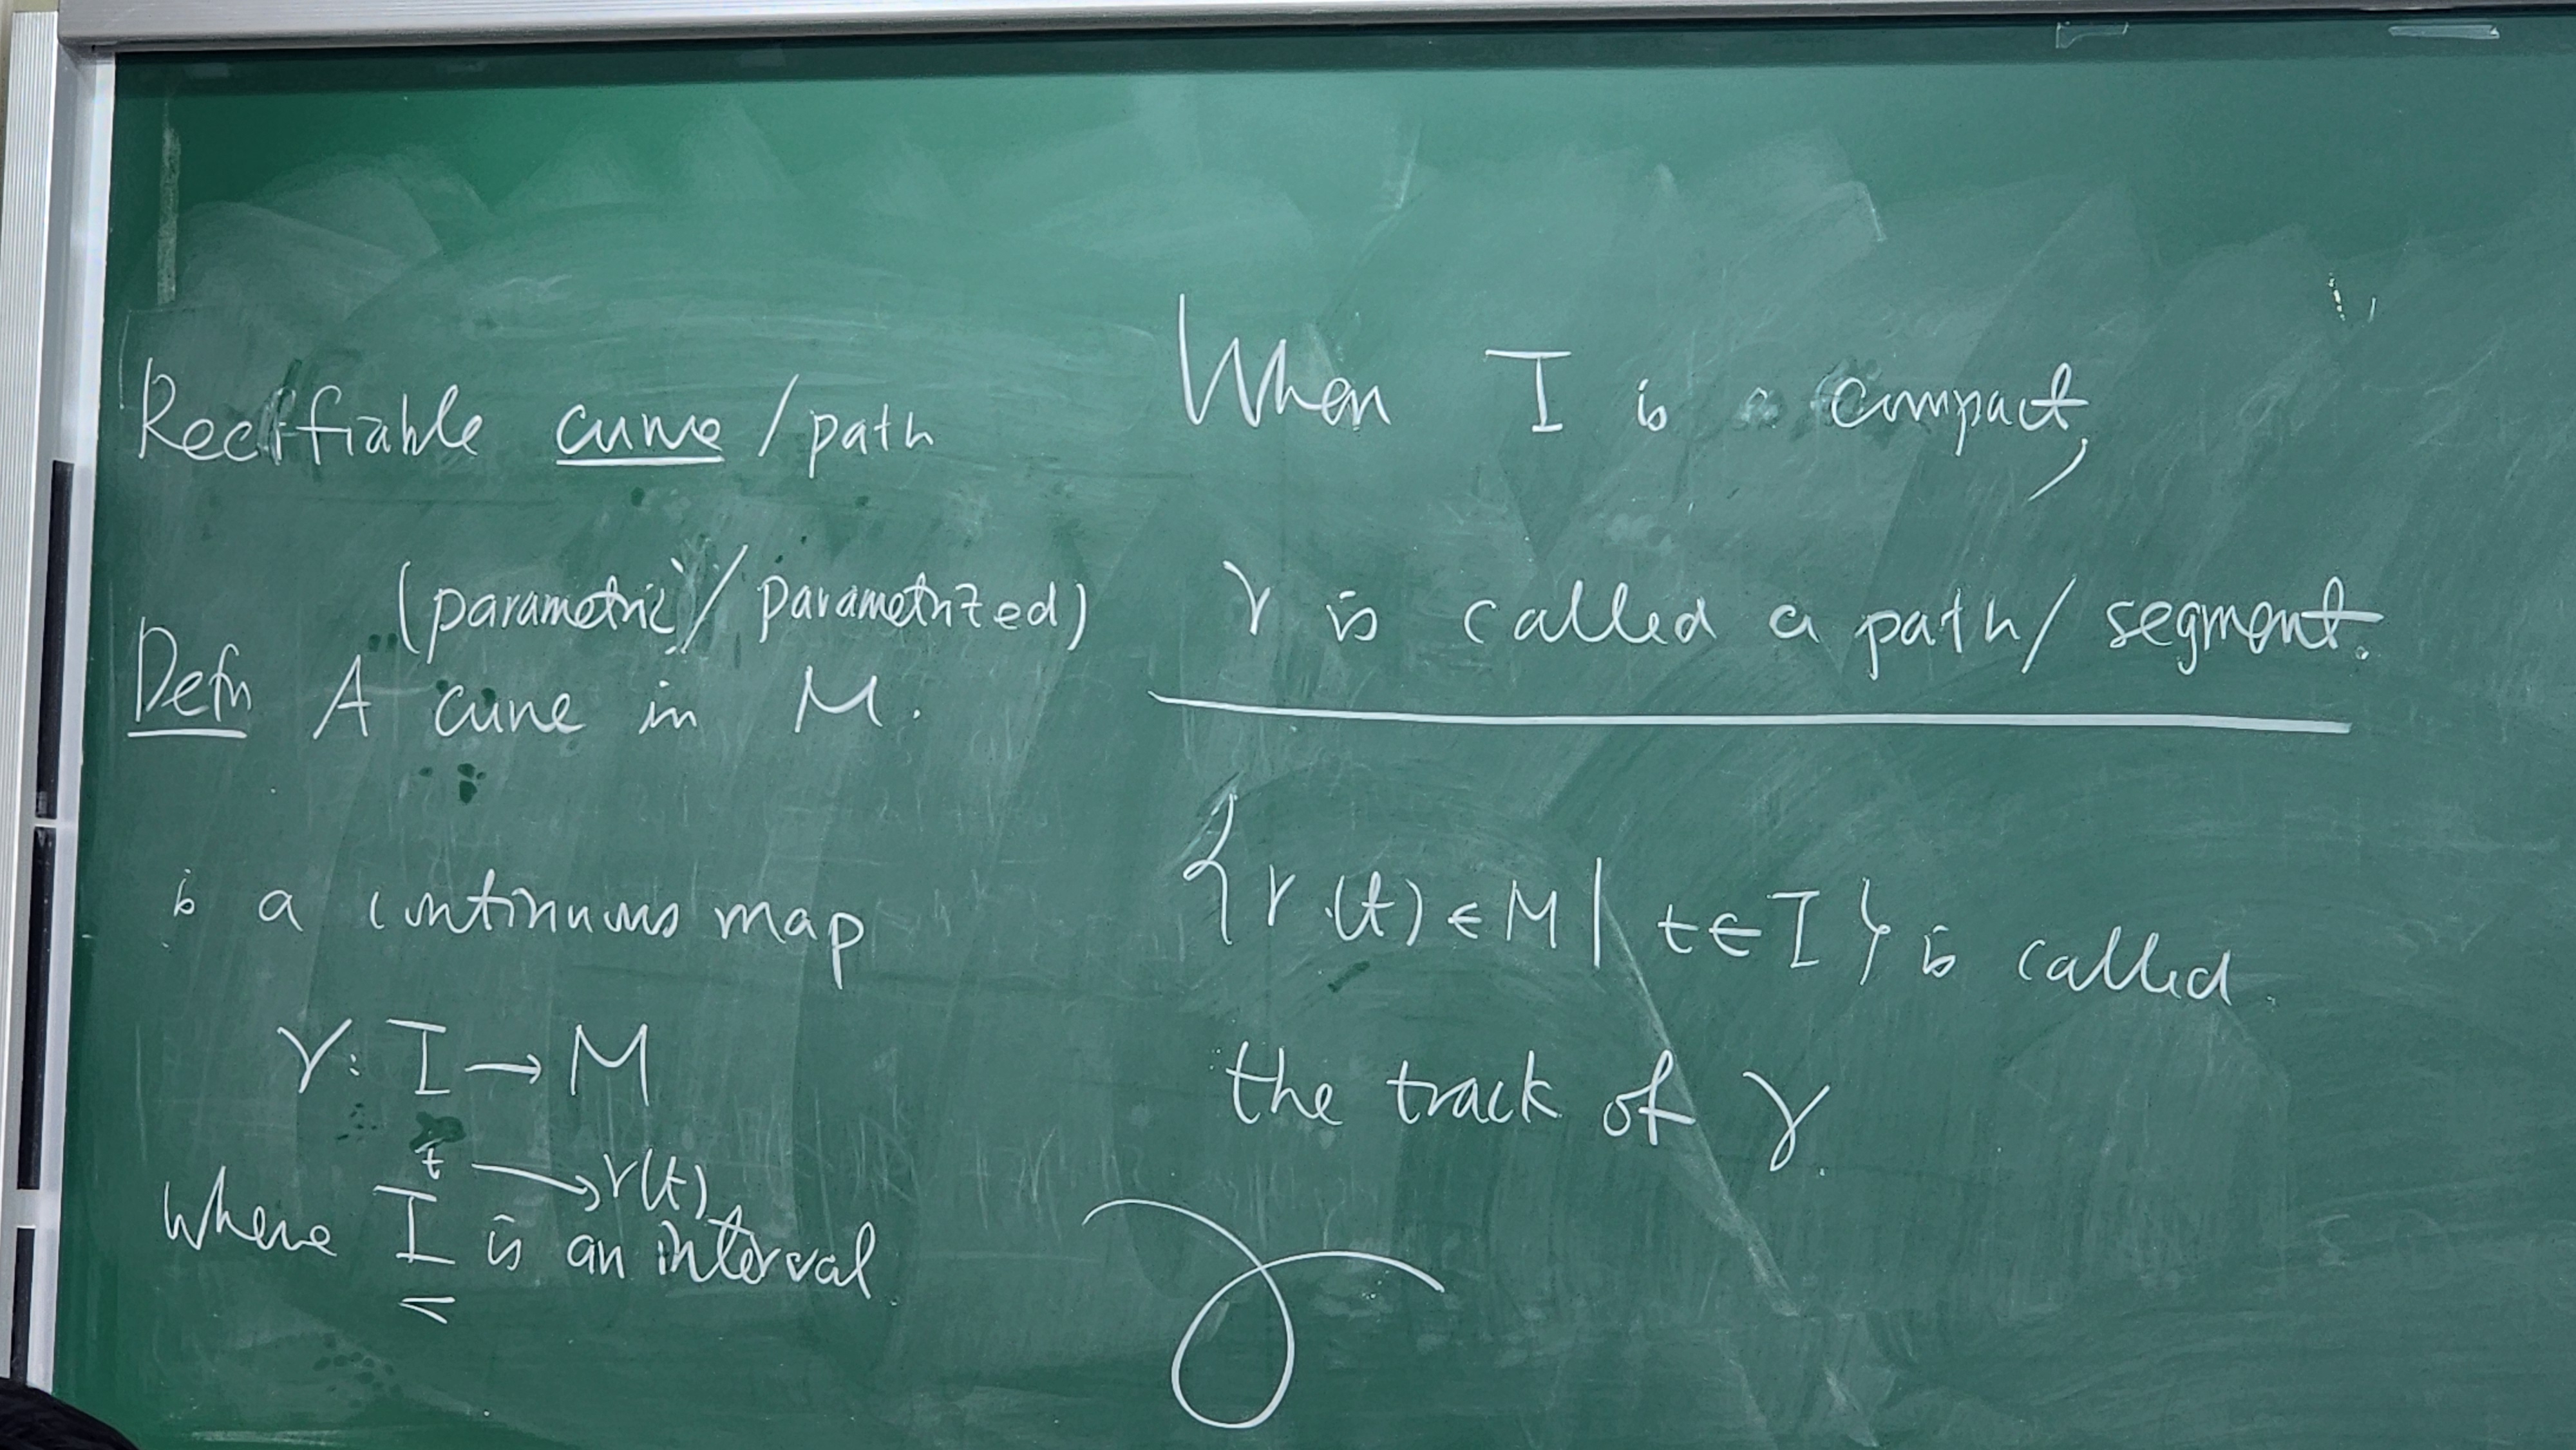 Rectifiable curve / path
(parametric / parametrized)
Defn A curve in M.
is a continuous map
γ: I → M
t → γ(t)
where I is an interval
When I is compact,
γ is called a path / segment.
{γ(t) ∈ M | t ∈ I} is called
the track of γ